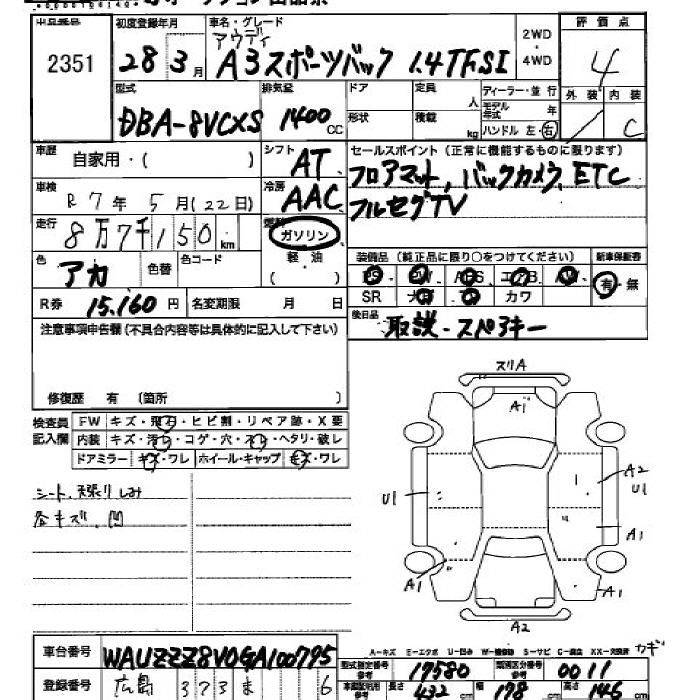 出品番号 初度登録年月 車名・グレード 2WD・4WD 評価点
2351 28 3月 アウディ A3スポーツバック 1.4TFSI 4
型式 排気量 ドア 定員 人 ディーラー・並行 外装 内装
DBA-8VCXS 1400cc 形状 積載 kg モデル年式 年 ハンドル 左・右 C
車歴 自家用・( ) シフト AT セールスポイント(正常に機能するものに限ります)
車検 R7年5月(22日) 冷房 AAC フロアマット、バックカメラ、ETC
フルセグTV
走行 8万7千150km ガソリン
軽・油
( )
色 アカ 色替 色コード 装備品(純正品に限り○をつけてください) 新車保証書
PS PW ABS エアB AW 有・無
SR ナビ カワ
R券 15,160円 名変期限 月 日 後日品 取説・スペアキー
注意事項申告欄(不具合内容等は具体的に記入して下さい)
修復歴 有 (箇所 )
検査員記入欄 FW キズ・飛石・ヒビ割・リペア跡・X要
内装 キズ・汚レ・コゲ・穴・スレ・ヘタリ・破レ
ドアミラー キズ・ワレ ホイール・キャップ キズ・ワレ
シート、天張りしみ
各キズ、凹
スリA
A1
A2
U1 U1
A1
A1 A1
A2
車台番号 WAUZZZ8V0GA100795
A-キズ E-エクボ U-凹み W-補修跡 S-サビ C-腐食 XX-交換済 カギ
型式指定番号 17580 類別区分番号 0011
登録番号 広島 373 ま 6
長さ 432cm 幅 178cm 高さ 146cm